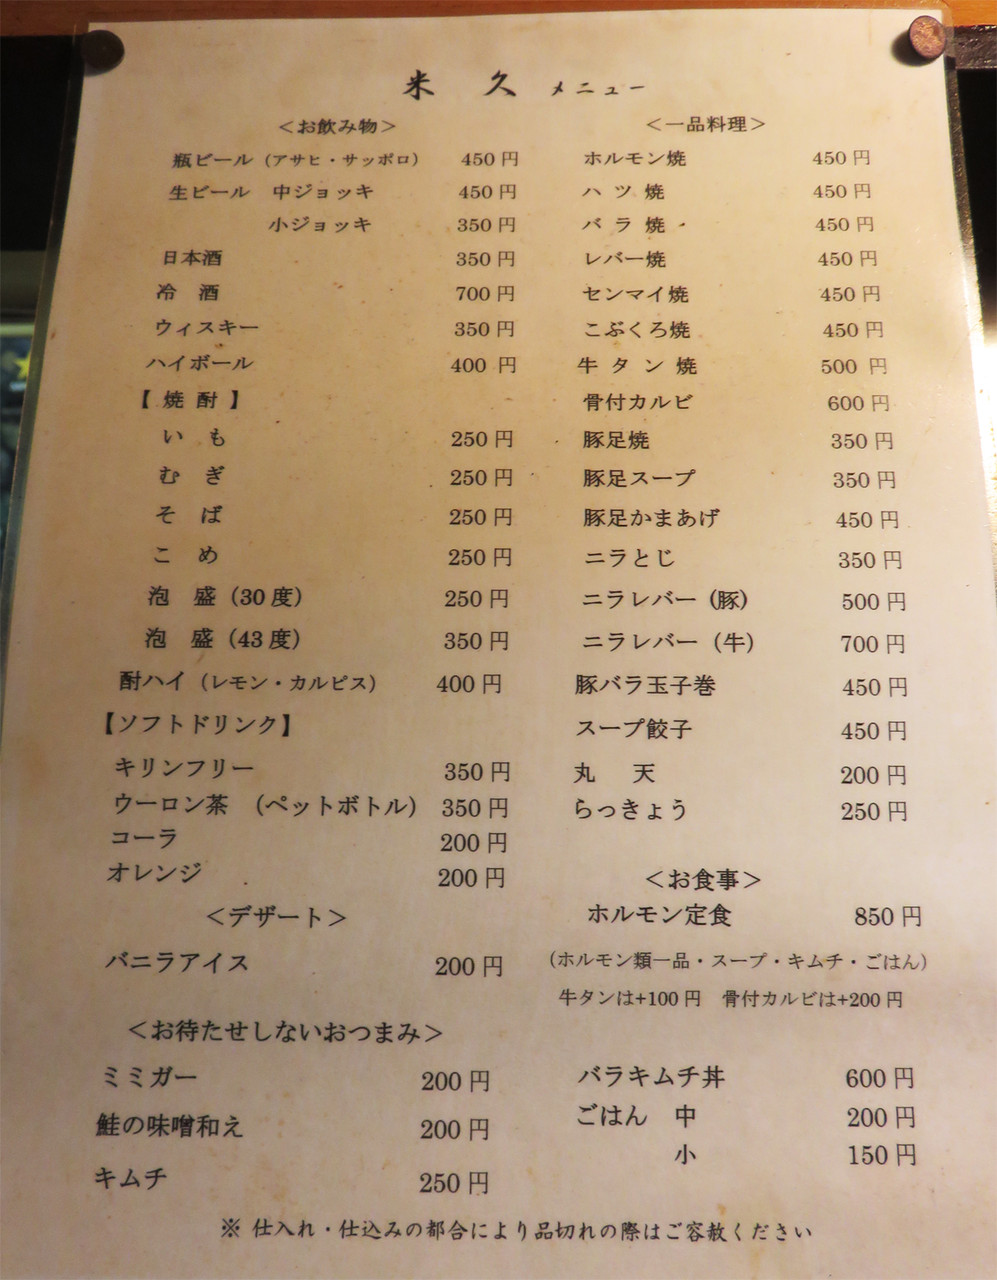 米 久 メニュー
＜お飲み物＞
瓶ビール（アサヒ・サッポロ） 450 円
生ビール 中ジョッキ 450 円
小ジョッキ 350 円
日本酒 350 円
冷 酒 700 円
ウィスキー 350 円
ハイボール 400 円
【 焼 酎 】
い も 250 円
む ぎ 250 円
そ ば 250 円
こ め 250 円
泡 盛（30 度） 250 円
泡 盛（43 度） 350 円
酎ハイ（レモン・カルピス） 400 円
【ソフトドリンク】
キリンフリー 350 円
ウーロン茶 （ペットボトル） 350 円
コーラ 200 円
オレンジ 200 円
＜デザート＞
バニラアイス 200 円
＜お待たせしないおつまみ＞
ミミガー 200 円
鮭の味噌和え 200 円
キムチ 250 円
＜一品料理＞
ホルモン焼 450 円
ハ ツ 焼 450 円
バ ラ 焼 450 円
レバー焼 450 円
センマイ焼 450 円
こぶくろ焼 450 円
牛 タ ン 焼 500 円
骨付カルビ 600 円
豚足焼 350 円
豚足スープ 350 円
豚足かまあげ 450 円
ニラとじ 350 円
ニラレバー（豚） 500 円
ニラレバー（牛） 700 円
豚バラ玉子巻 450 円
スープ餃子 450 円
丸 天 200 円
らっきょう 250 円
＜お食事＞
ホルモン定食 850 円
（ホルモン類一品・スープ・キムチ・ごはん）
牛タンは+100 円 骨付カルビは+200 円
バラキムチ丼 600 円
ごはん 中 200 円
小 150 円
※ 仕入れ・仕込みの都合により品切れの際はご容赦ください